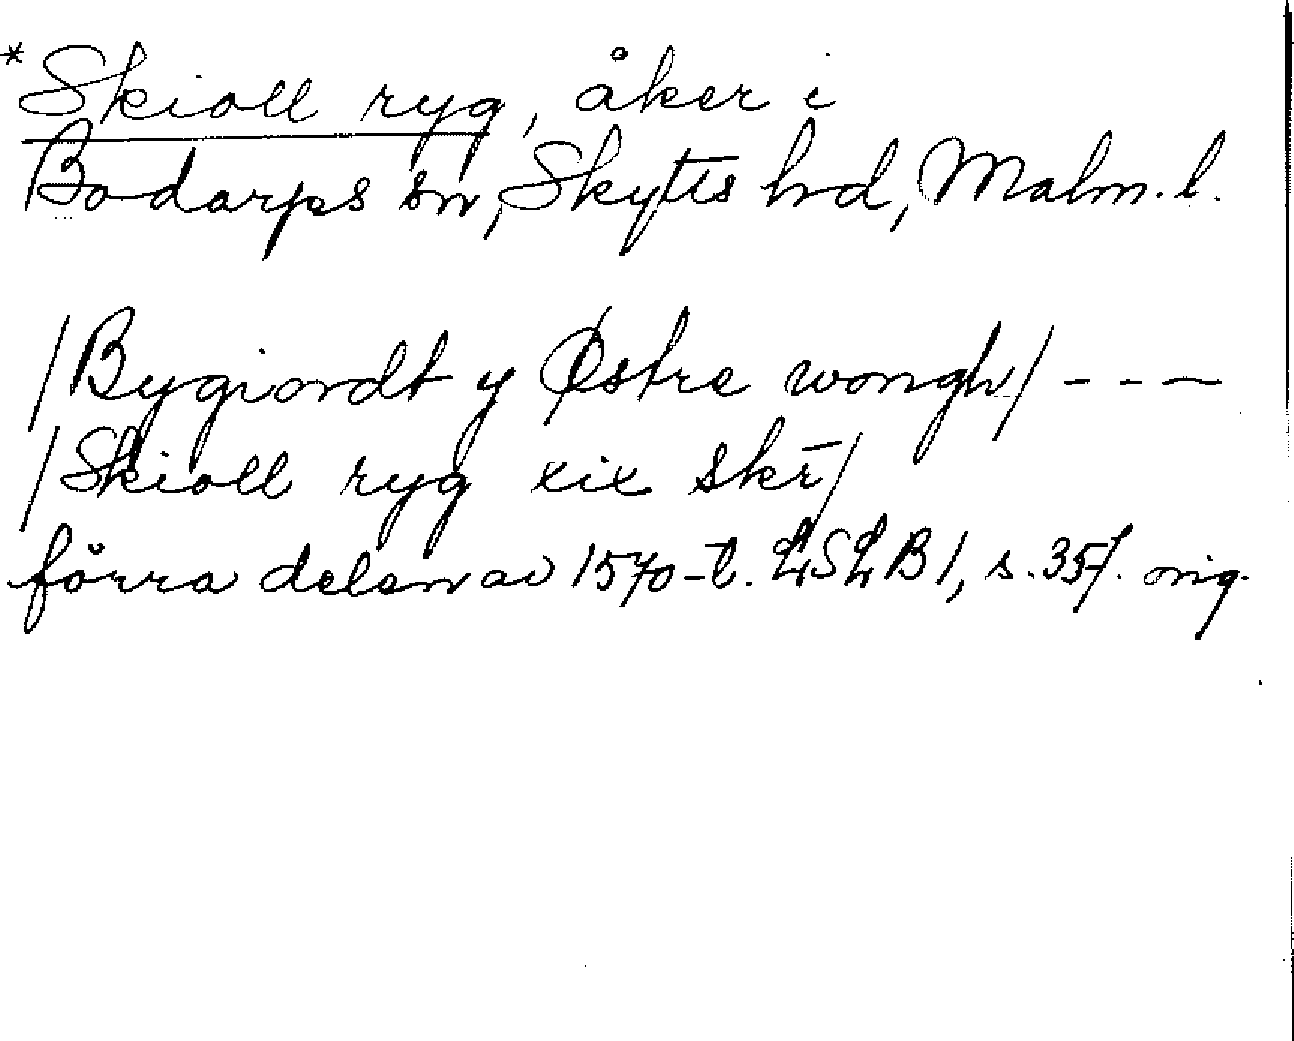 *Skioll ryg, åker i
Bodarps sn, Skytts hd, Malm. l.
/Bygiordt y Østre wongh/ - - -
/Skioll ryg xix skr̄/
förra delen av 1570-t. LSLB 1, s. 357. orig.